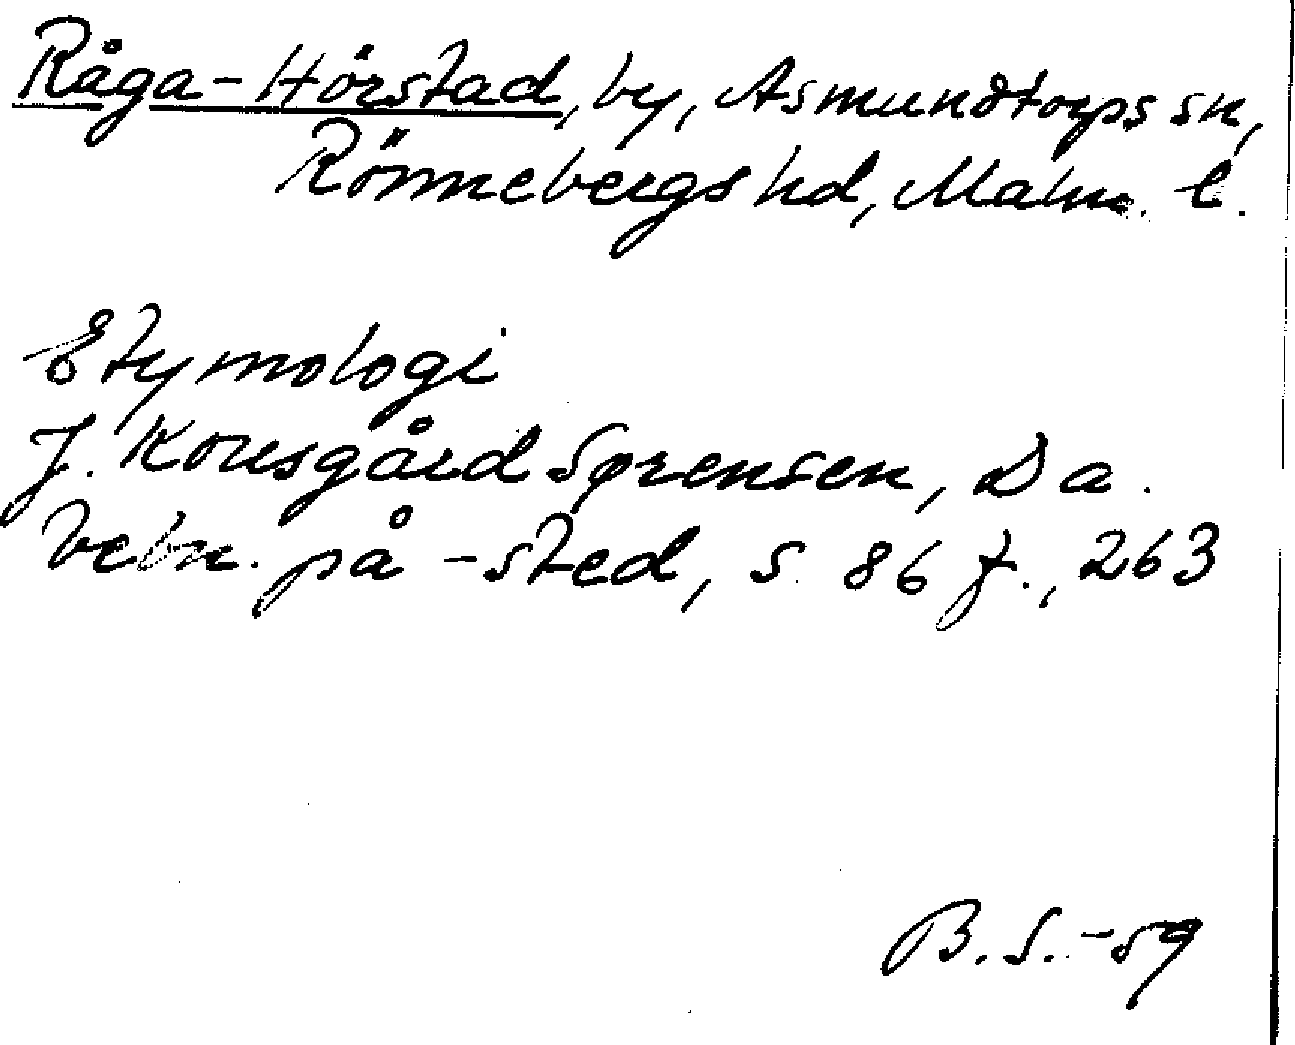 Råga-Hörstad, by, Asmundtorps sn,
Rönnebergs hd, Malm. l.
Etymologi
J. Kousgård Sørensen, Da.
bebn. på -sted, s. 86 f., 263
B.S.-59